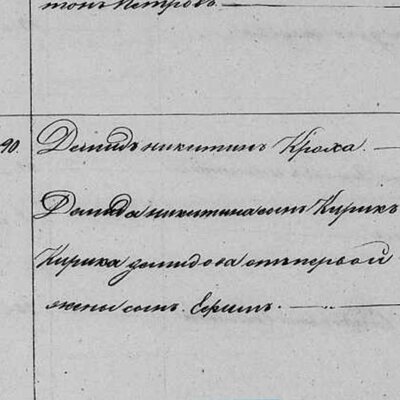 тонъ Петровъ.
90. Демидъ никитинъ Кроха.
Демида никитина сынъ Кирикъ
Кирика демидова отъ первой
жены сынъ. Ефимъ.